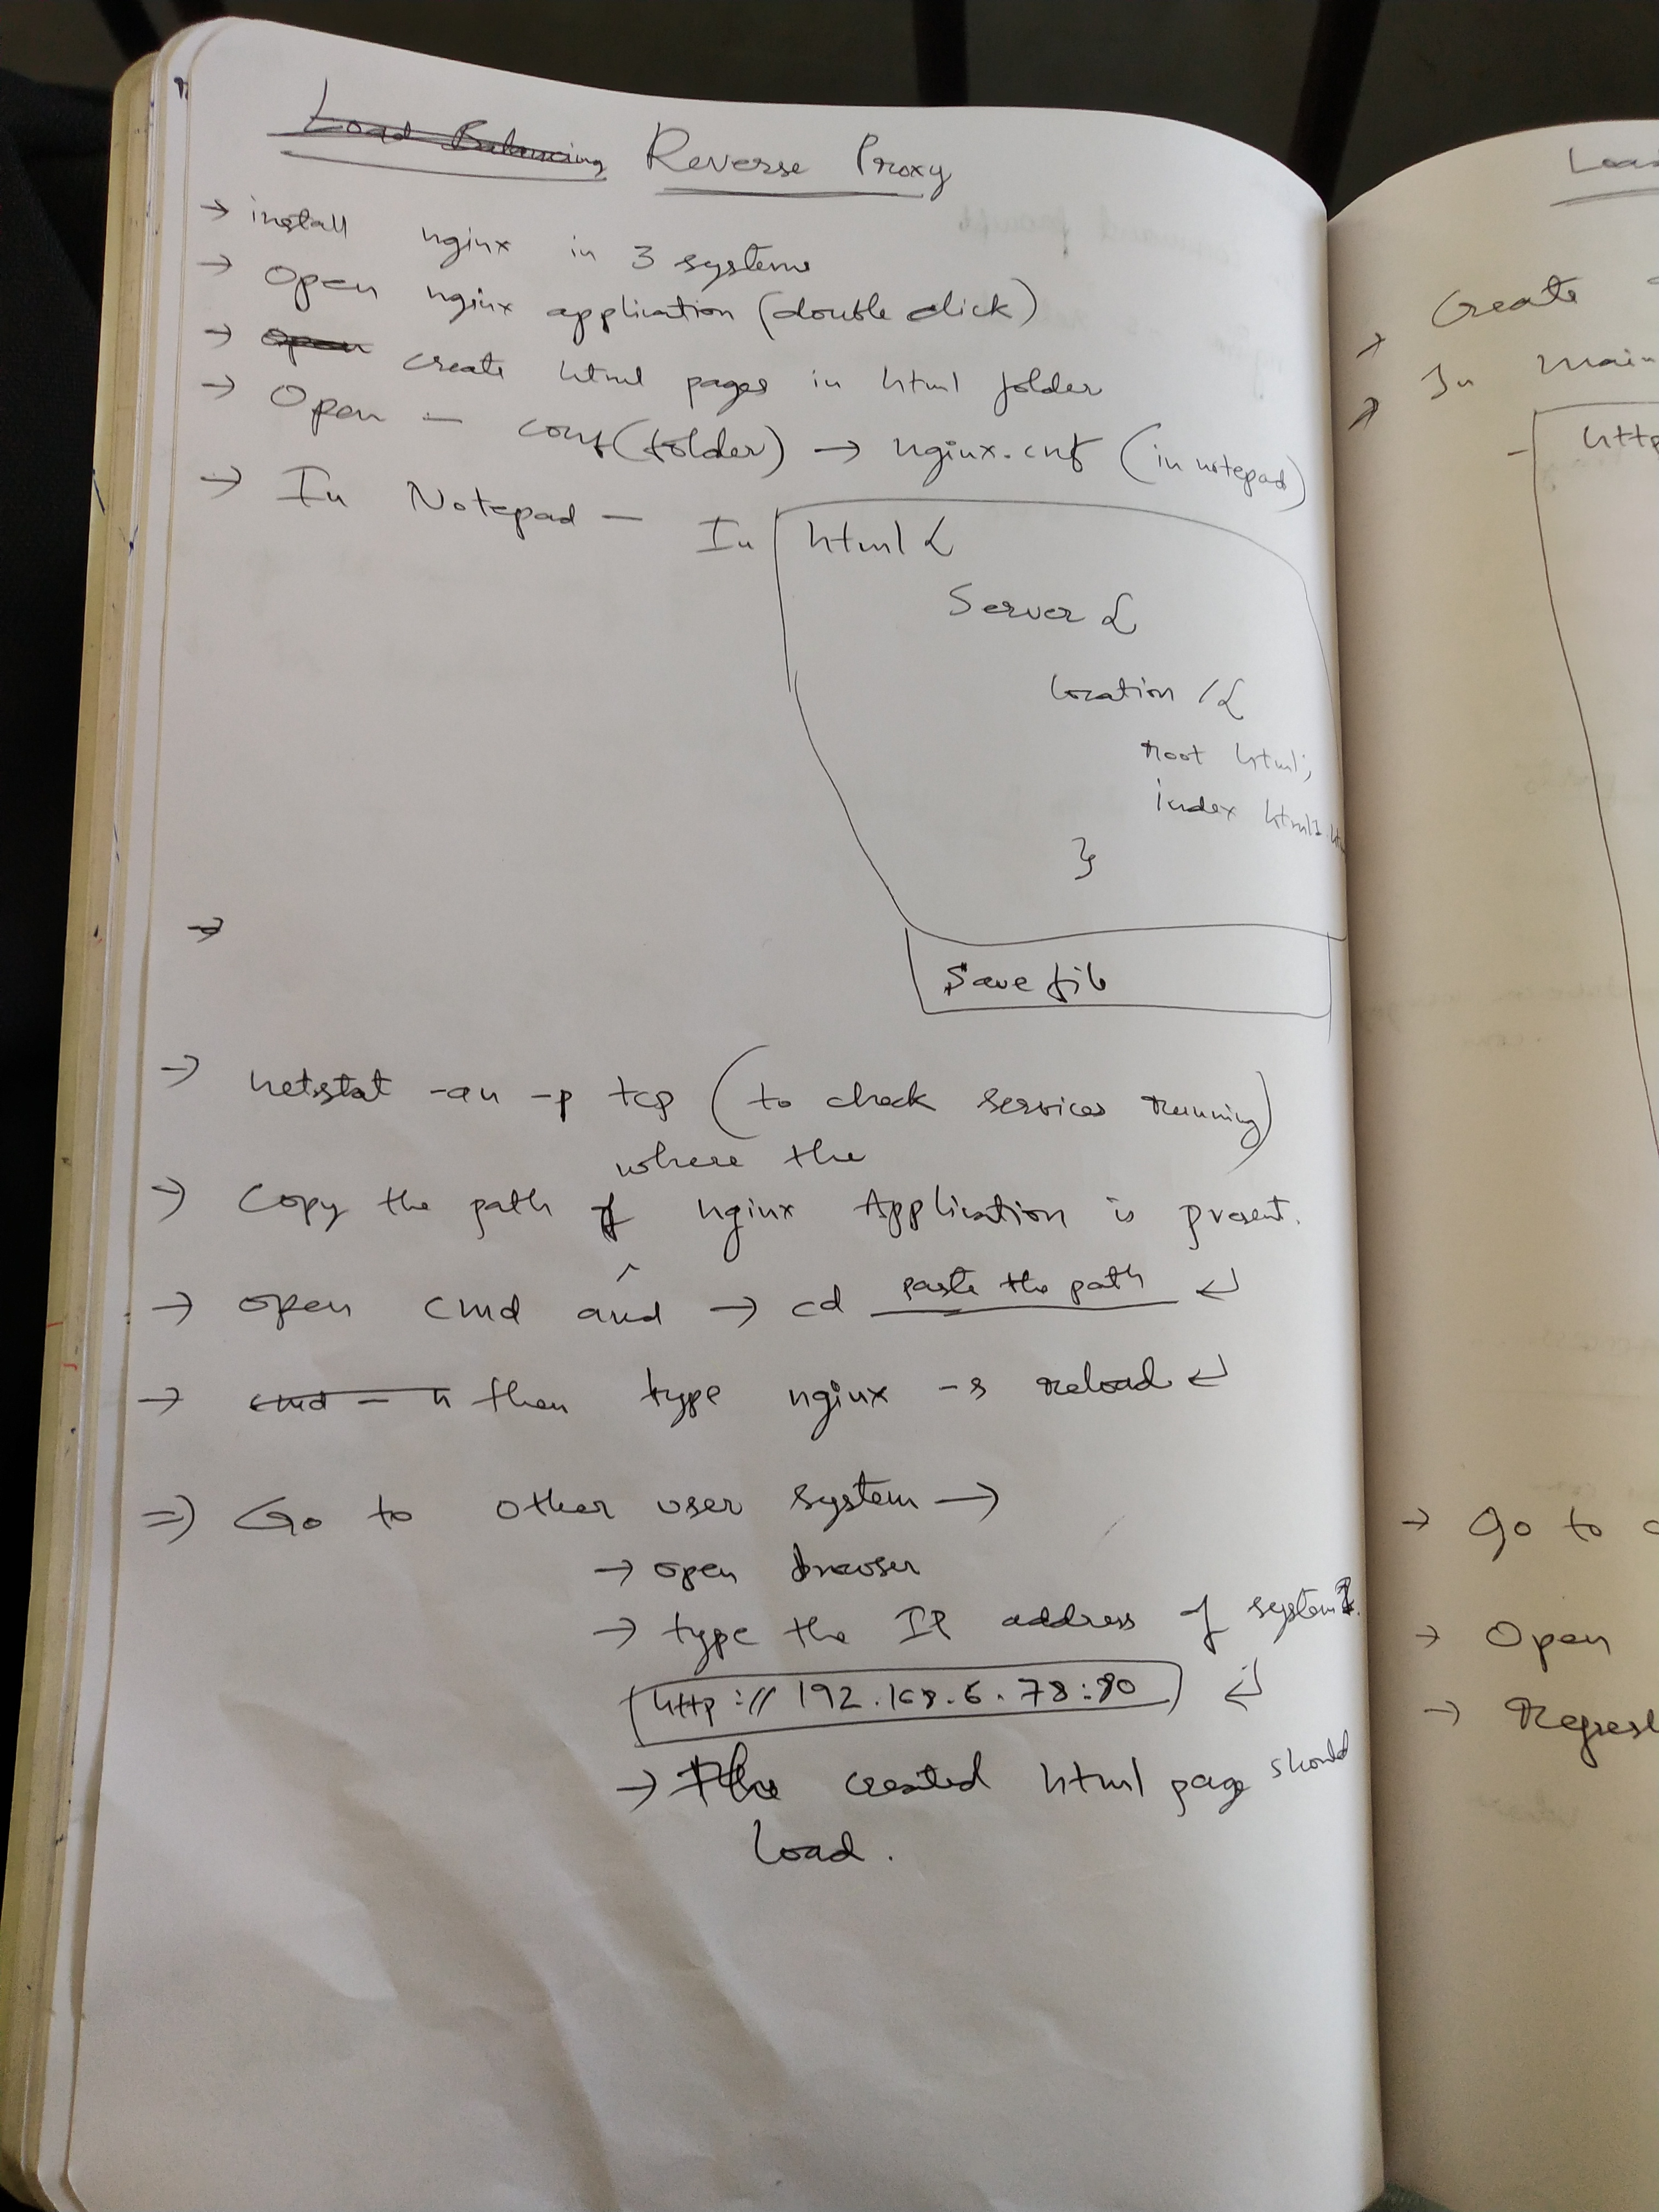 Load Balancing Reverse Proxy
→ install nginx in 3 systems
→ Open nginx application (double click)
→ Open create html pages in html folder
→ Open — conf (folder) → nginx.cnf (in notepad)
→ In Notepad — In html {
Server {
location / {
root html;
index html1.htm
}
→
Save file
→ netstat -an -p tcp (to check services running)
where the
→ Copy the path of nginx Application is present.
→ open cmd and → cd paste the path ↵
→ cmd - n then type nginx -s reload ↵
⇒ Go to other user system →
→ open browser
→ type the IP address of system
http://192.168.6.78:80 ↵
→ The created html page should
load.
Create
→ In main
http
→ Go to
→ Open
→